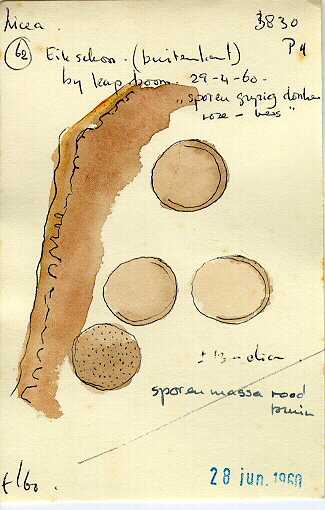 Licea 3830
(62) Eikeschors (buitenkant) P4
by kapboom 29-4-60.
"sporen grijzig donker
roze -
± 13 μ diam.
sporenmassa rood
bruin
28 jun. 1960